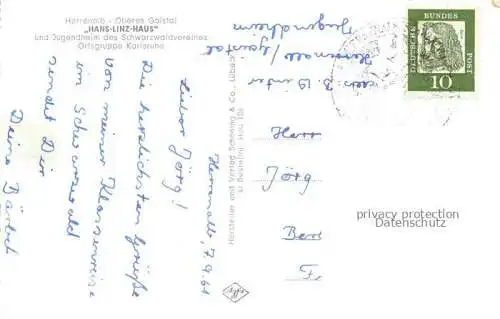 Herrenalb - Oberes Gaistal
„HANS-LINZ-HAUS"
und Jugendheim des Schwarzwaldvereines
Ortsgruppe Karlsruhe
Herrenalb, 7.9.61
Lieber Jörg!
Die herzlichsten Grüße
von meiner Klassenreise
im Schwarzwald
sendet Dir
Deine Bärbel
Hersteller und Verlag Schöning & Co., Lübeck
Herrenalb/Gaistal
Jugendheim
DEUTSCHE
BUNDES
POST
10
Herrn
Jörg
Ber
F
privacy protection
Datenschutz
Agfa